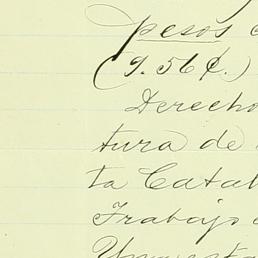 pesos
(9.56¢.)
Derecho
tura de
ta Catal
Trabajo